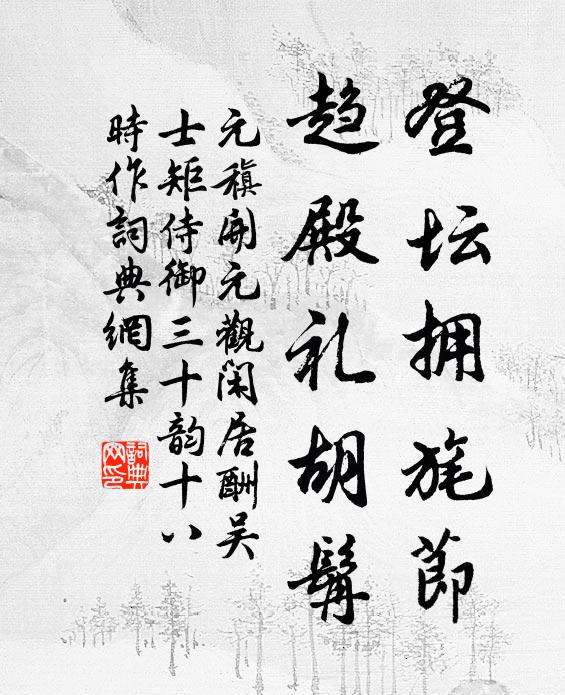 登坛拥旄节
趋殿礼胡髯
元稹開元觀闲居酬吴
士矩侍御三十韵十八
時作詞典網集
詞典网印